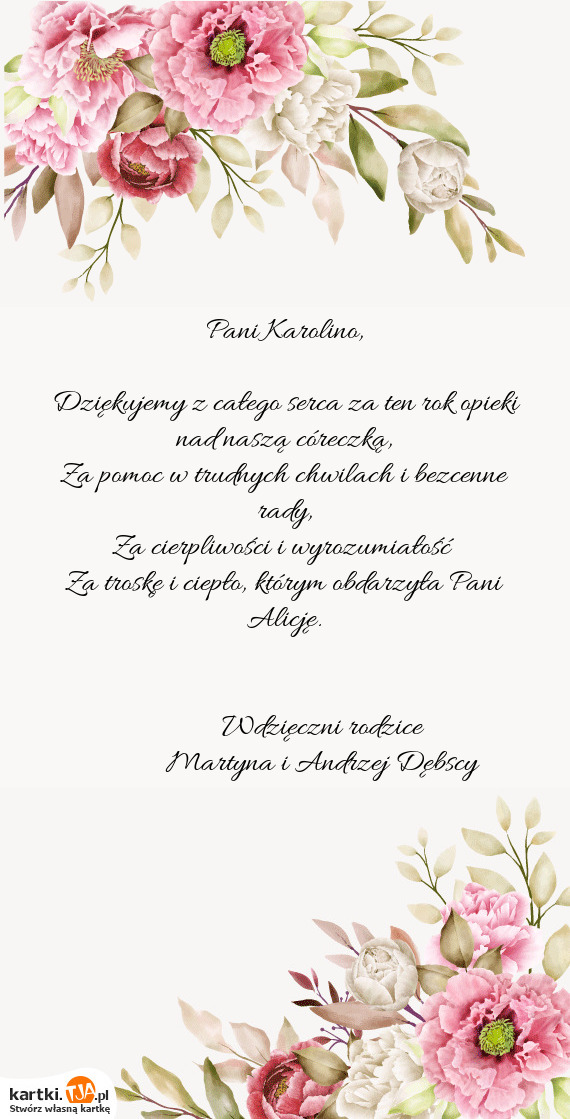 Pani Karolino,
Dziękujemy z całego serca za ten rok opieki
nad naszą córeczką,
Za pomoc w trudnych chwilach i bezcenne
rady,
Za cierpliwości i wyrozumiałość
Za troskę i ciepło, którym obdarzyła Pani
Alicję.
Wdzięczni rodzice
Martyna i Andrzej Dębscy
kartki.TJA.pl
Stwórz własną kartkę